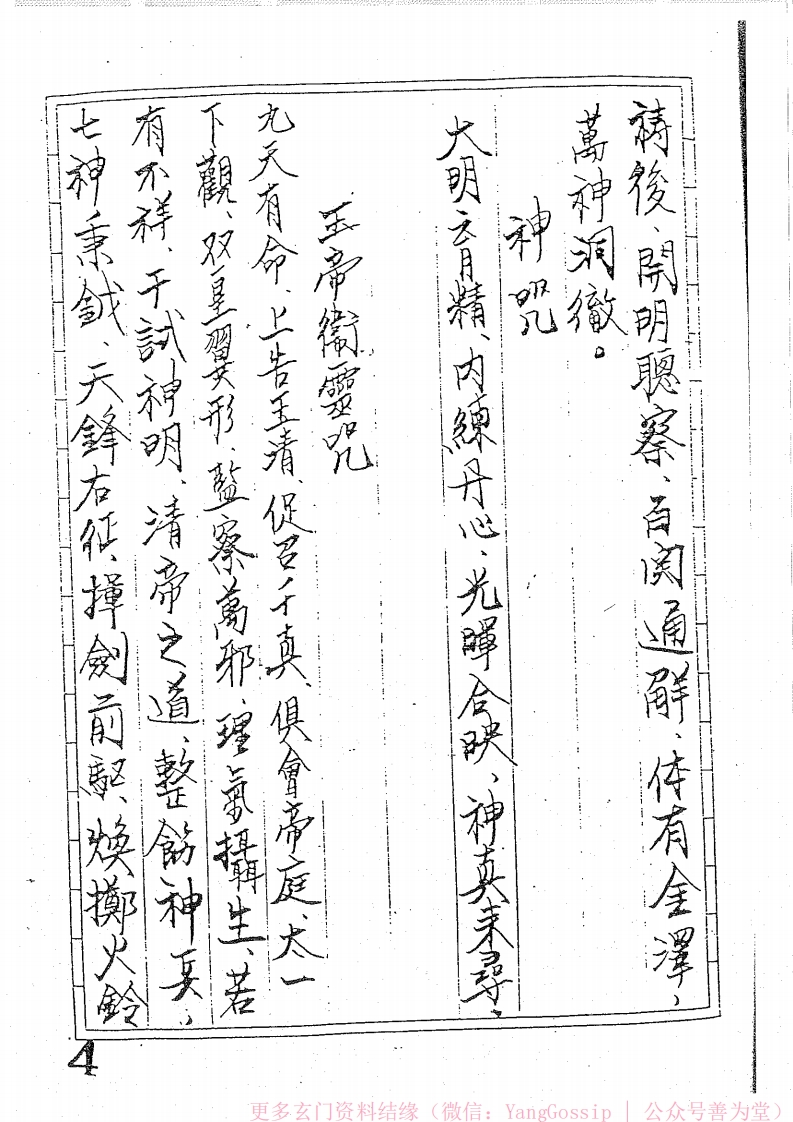 祷後、開明聰察、百関通解、体有金澤、
萬神洞徹。
神咒
大明育精、内練丹心、光暉合映、神真来尋、
玉帝衛靈咒
九天有命、上告玉清、促召千真、俱會帝庭、太一
下觀、双皇翼形、監察萬邪、理氣攝生、若
有不祥、干試神明、清帝之道、整飭神兵、
七神秉鉞、天鋒右征、揮劍前駆、煥擲火鈴
4
更多玄门资料结缘（微信：YangGossip | 公众号善为堂）